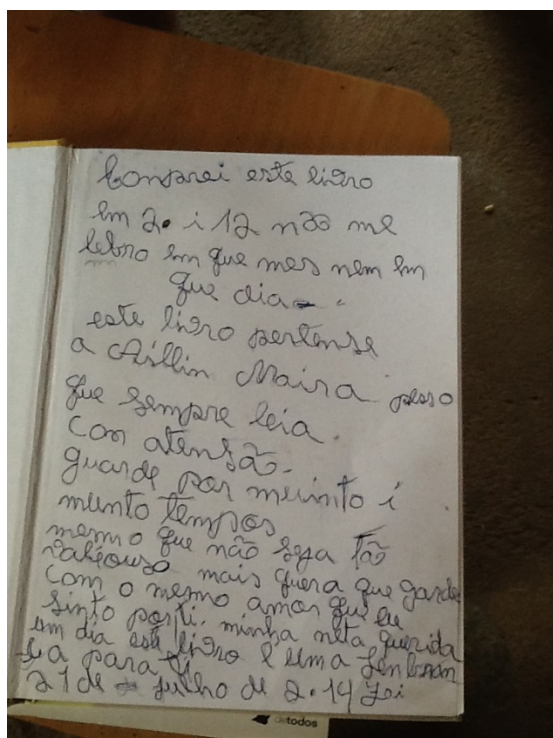 Comprei este livro
em 2. i 12 não me
lebro em que mes nem em
que dia
este livro pertense
a Maira peso
que sempre leia
con atensão.
guarde por muinto i
muinto tempos
mesmo que não seja tão
mais quera que garde
com o mesmo amor que eu
sinto por ti. minha neta querida
um dia este livro e uma
para ti
21 de julho de 2.14
detodos